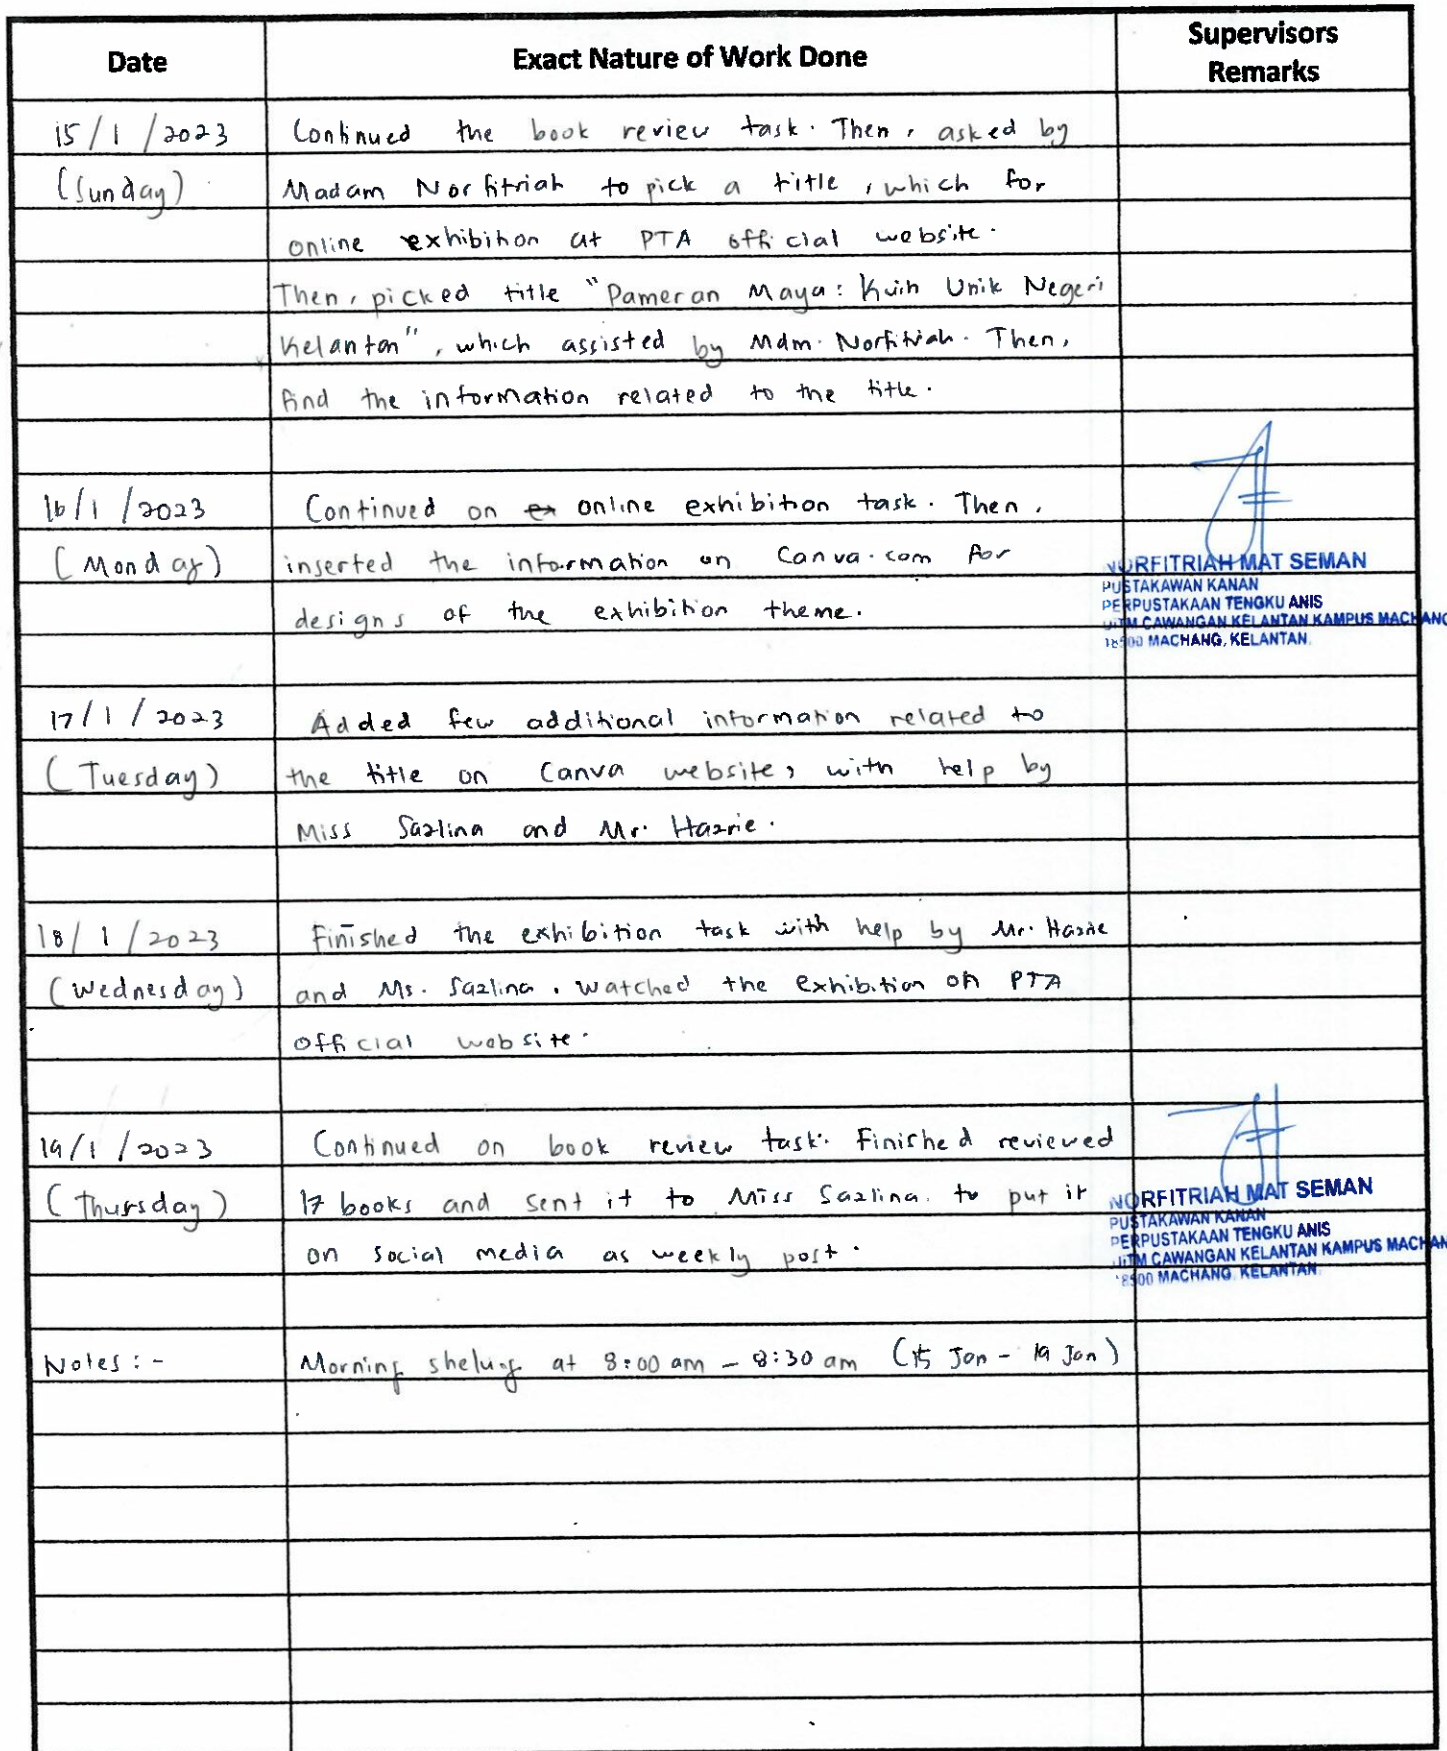 Date Exact Nature of Work Done Supervisors Remarks
15/1/2023 Continued the book review task. Then, asked by
(Sunday) Madam Norfitriah to pick a title, which for
online exhibition at PTA official website.
Then, picked title "Pameran Maya: Kuih Unik Negeri
Kelantan", which assisted by Mdm. Norfitriah. Then,
find the information related to the title.
16/1/2023 Continued on ex online exhibition task. Then,
(Monday) inserted the information on Canva.com for
designs of the exhibition theme.
NORFITRIAH MAT SEMAN
PUSTAKAWAN KANAN
PERPUSTAKAAN TENGKU ANIS
UiTM CAWANGAN KELANTAN KAMPUS MACHANG
18500 MACHANG, KELANTAN.
17/1/2023 Added few additional information related to
(Tuesday) the title on Canva website, with help by
Miss Sazlina and Mr. Hazrie.
18/1/2023 Finished the exhibition task with help by Mr. Hazrie
(Wednesday) and Ms. Sazlina. Watched the exhibition on PTA
official website.
19/1/2023 Continued on book review task. Finished reviewed
(Thursday) 17 books and sent it to Miss Sazlina. to put it
on social media as weekly post.
NORFITRIAH MAT SEMAN
PUSTAKAWAN KANAN
PERPUSTAKAAN TENGKU ANIS
UiTM CAWANGAN KELANTAN KAMPUS MACHAN
18500 MACHANG, KELANTAN.
Notes:- Morning shelving at 8:00 am - 8:30 am (15 Jan - 19 Jan)